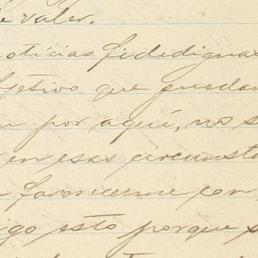 e valer.
noticias fidedignas
jetivo que puedan
n por aquí, no s
en esas circunsta
favorecerme con
igo esto porque s